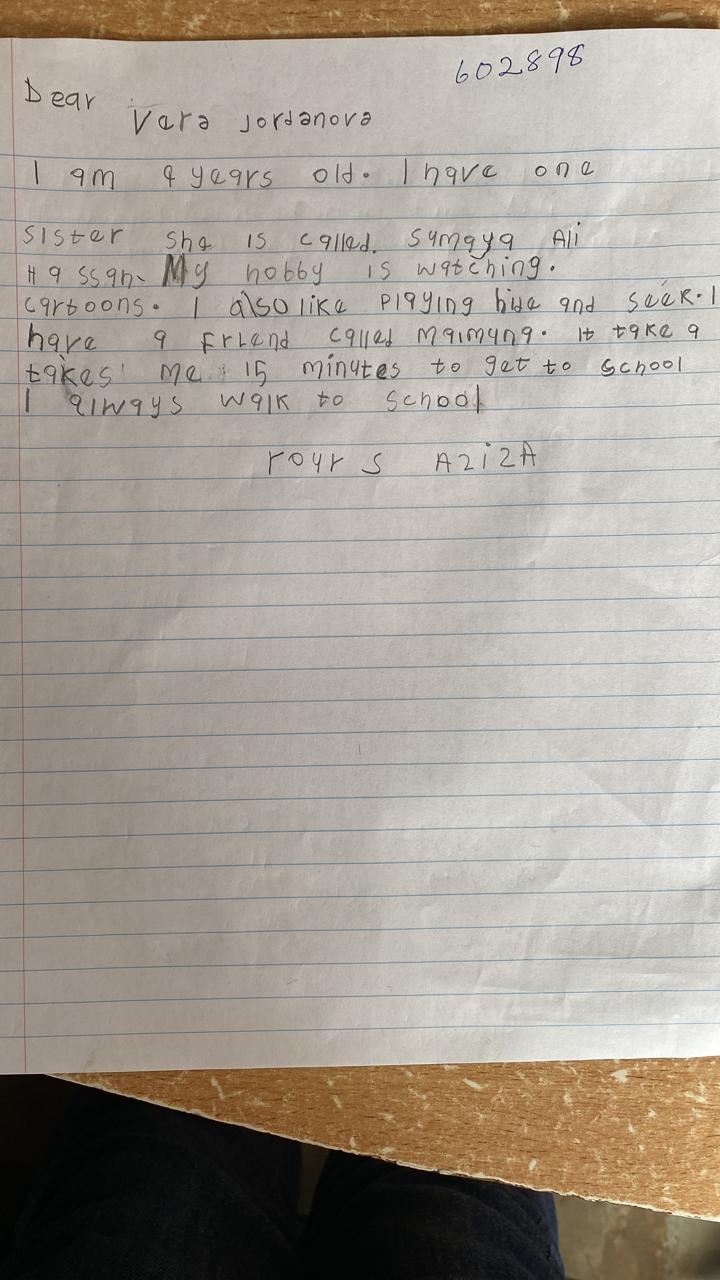 602898
Dear
Vera Jordanova
I am 9 years old. I have one
Sister She is called. Sumaya Ali
Hassan. My hobby is watching.
cartoons. I also like Playing hide and seek. I
have a Friend called Maimuna. It take a
takes me 15 minutes to get to school
I always walk to school
Yours AZiZA